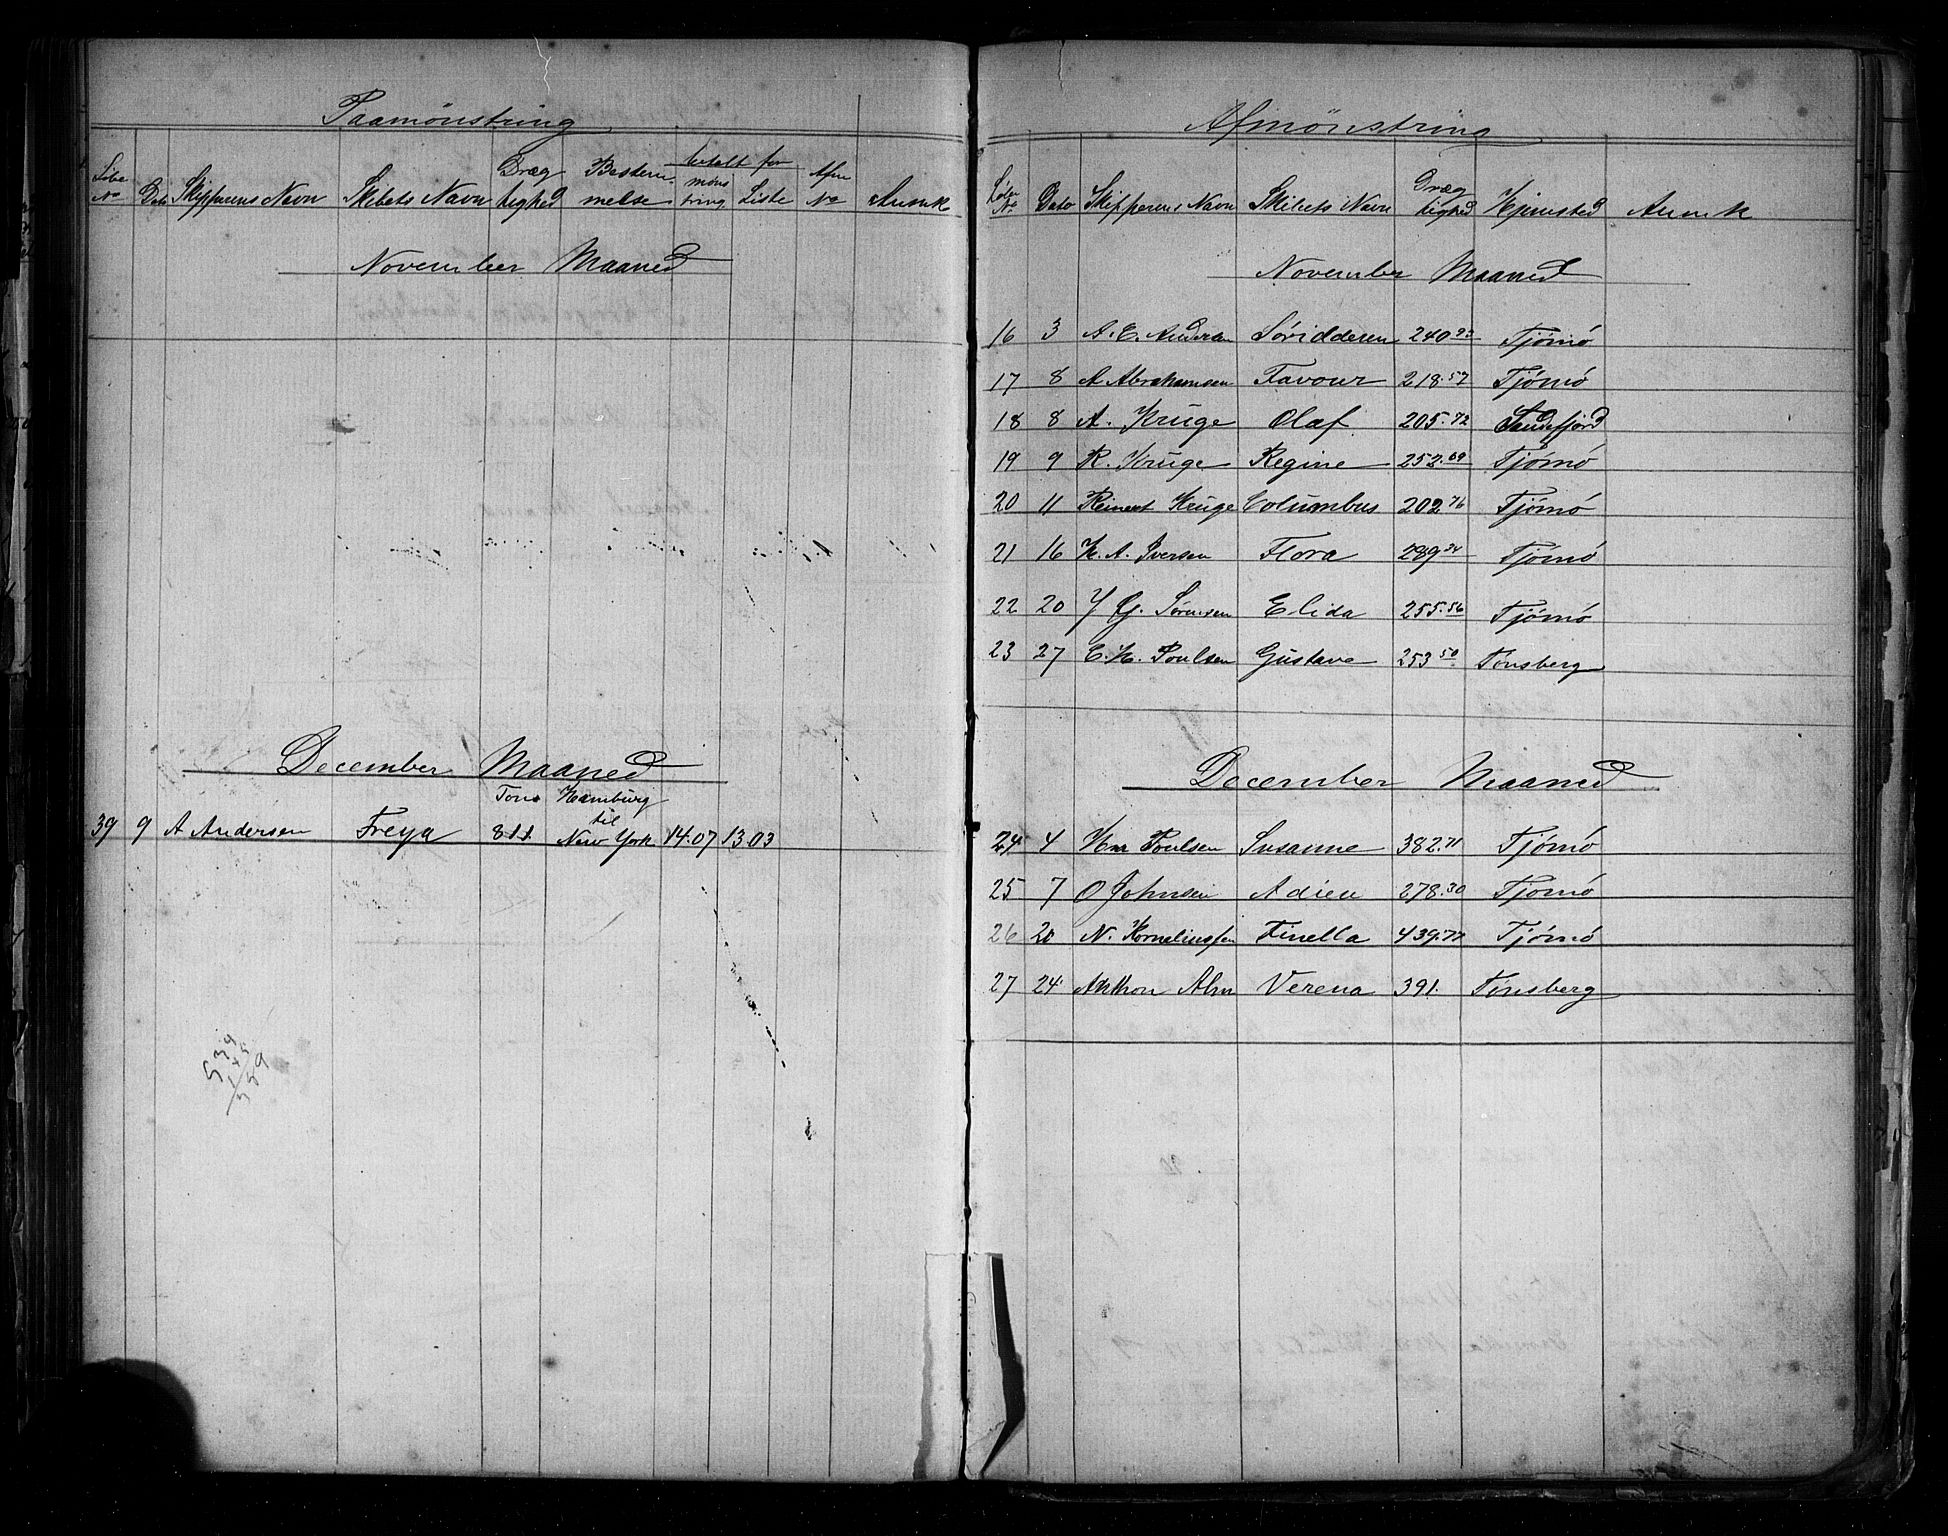 Paamönstring
Löbe No Dato Skipperens Navn Skibets Navn Dræg tighed Bestem melse betalt for møns tring Liste Afm No Anmk
November Maaned
December Maaned
Tons Hamburg til
39 9 A Andersen Freya 811 New York 14.07 13.03
Afmönstring
Löbe No Dato Skipperens Navn Skibets Navn Dræg tighed Hjemsted Anmk
November Maaned
16 3 A. E. Andersen Söridderen 240.93 Tjømø
17 8 A Abrahamsen Favour 218.57 Tjømø
18 8 A. Kruge Olaf 205.72 Sandefjord
19 9 R. Kruge Regine 252.69 Tjømø
20 11 Reinert Kruge Columbus 202.76 Tjømø
21 16 K. A. Iversen Flora 34 Tjømø
22 20 G. Sörensen Elida 255.56 Tjømø
23 27 C. H. Poulsen Gustave 253.50 Tønsberg
December Maaned
24 4 Poulsen Susanne 382.71 Tjømø
25 7 O Johnsen Adien 278.30 Tjømø
26 20 N. Korneliussen Finella 439.77 Tjømø
27 24 Alm Verena 391. Tønsberg